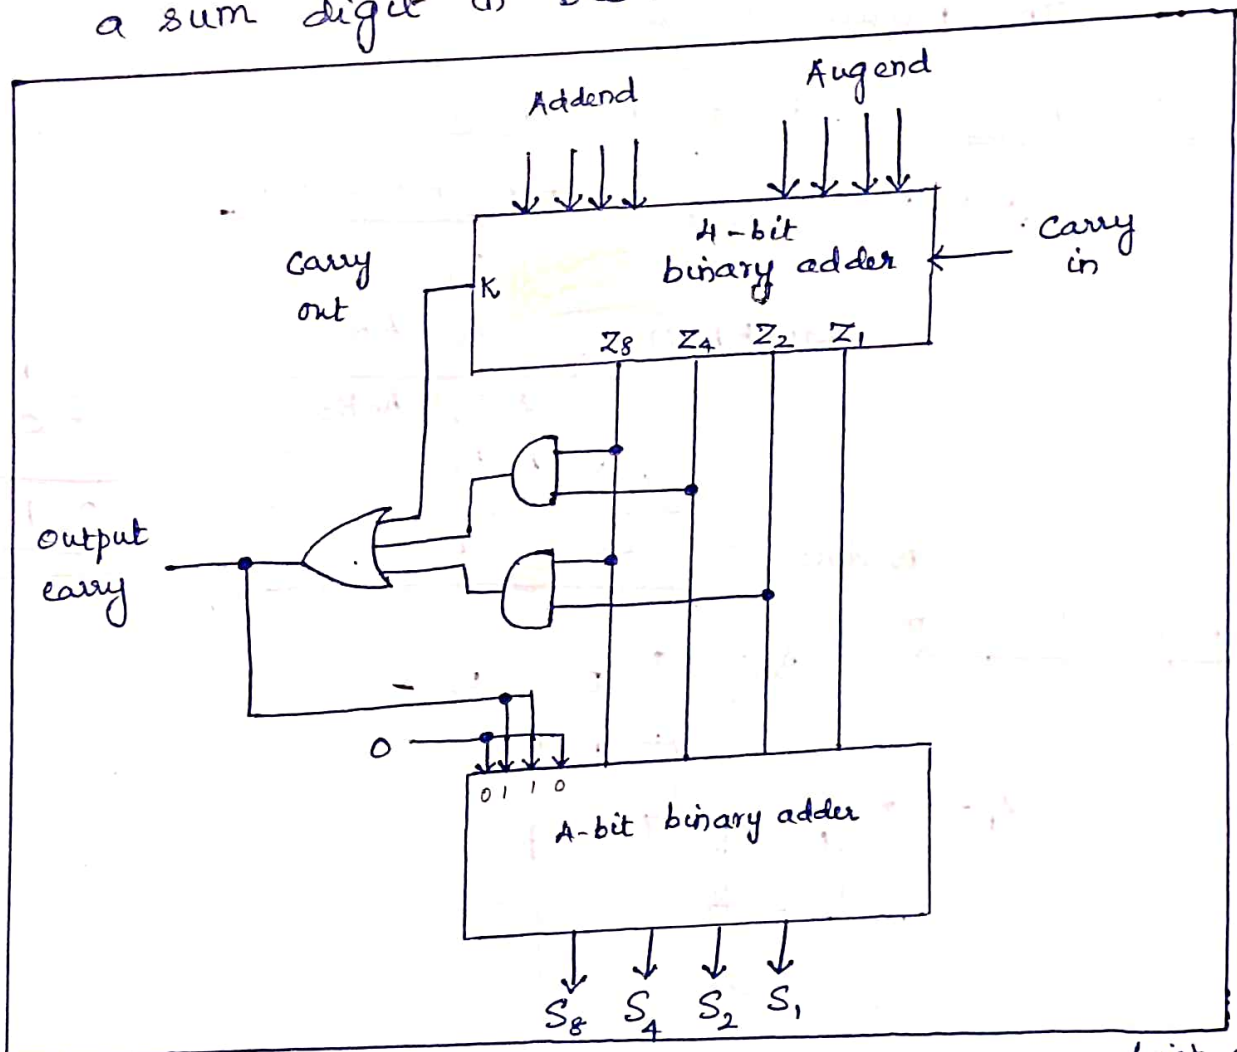 a sum digit in
Addend
Augend
4-bit
binary adder
Carry
in
Carry
out
K
Z8 Z4 Z2 Z1
Output
carry
0
0 1 1 0
4-bit binary adder
S8 S4 S2 S1